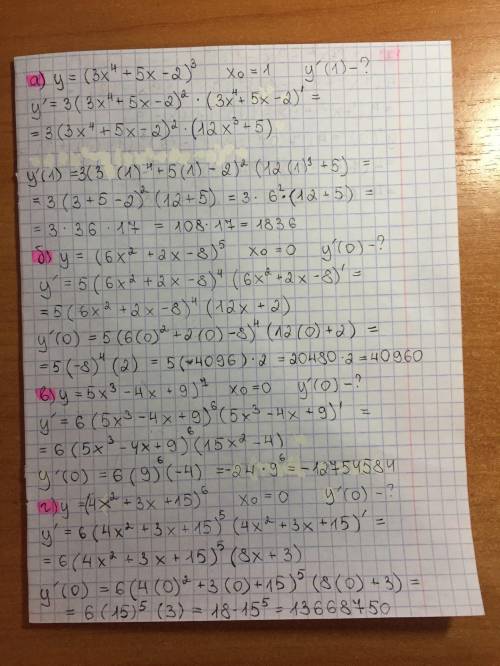 а) y = (3x⁴ + 5x - 2)³ x₀ = 1 y'(1) - ?
y' = 3(3x⁴ + 5x - 2)² · (3x⁴ + 5x - 2)' =
= 3(3x⁴ + 5x - 2)² · (12x³ + 5)
y'(1) = 3(3 (1)⁴ + 5(1) - 2)² (12(1)³ + 5) =
= 3(3 + 5 - 2)² (12 + 5) = 3 · 6² · (12 + 5) =
= 3 · 36 · 17 = 108 · 17 = 1836
б) y = (6x² + 2x - 8)⁵ x₀ = 0 y'(0) - ?
y' = 5(6x² + 2x - 8)⁴ (6x² + 2x - 8)' =
= 5(6x² + 2x - 8)⁴ (12x + 2)
y'(0) = 5(6(0)² + 2(0) - 8)⁴ (12(0) + 2) =
= 5(-8)⁴ (2) = 5(4096) · 2 = 20480 · 2 = 40960
в) y = 5x³ - 4x + 9)⁷ x₀ = 0 y'(0) - ?
y' = 6(5x³ - 4x + 9)⁶ (5x³ - 4x + 9)' =
= 6(5x³ - 4x + 9)⁶ (15x² - 4)
y'(0) = 6(9)⁶ (-4) = -24 · 9⁶ = -12754584
г) y = (4x² + 3x + 15)⁶ x₀ = 0 y'(0) - ?
y' = 6(4x² + 3x + 15)⁵ (4x² + 3x + 15)' =
= 6(4x² + 3x + 15)⁵ (8x + 3)
y'(0) = 6(4(0)² + 3(0) + 15)⁵ (8(0) + 3) =
= 6(15)⁵ · (3) = 18 · 15⁵ = 13668750